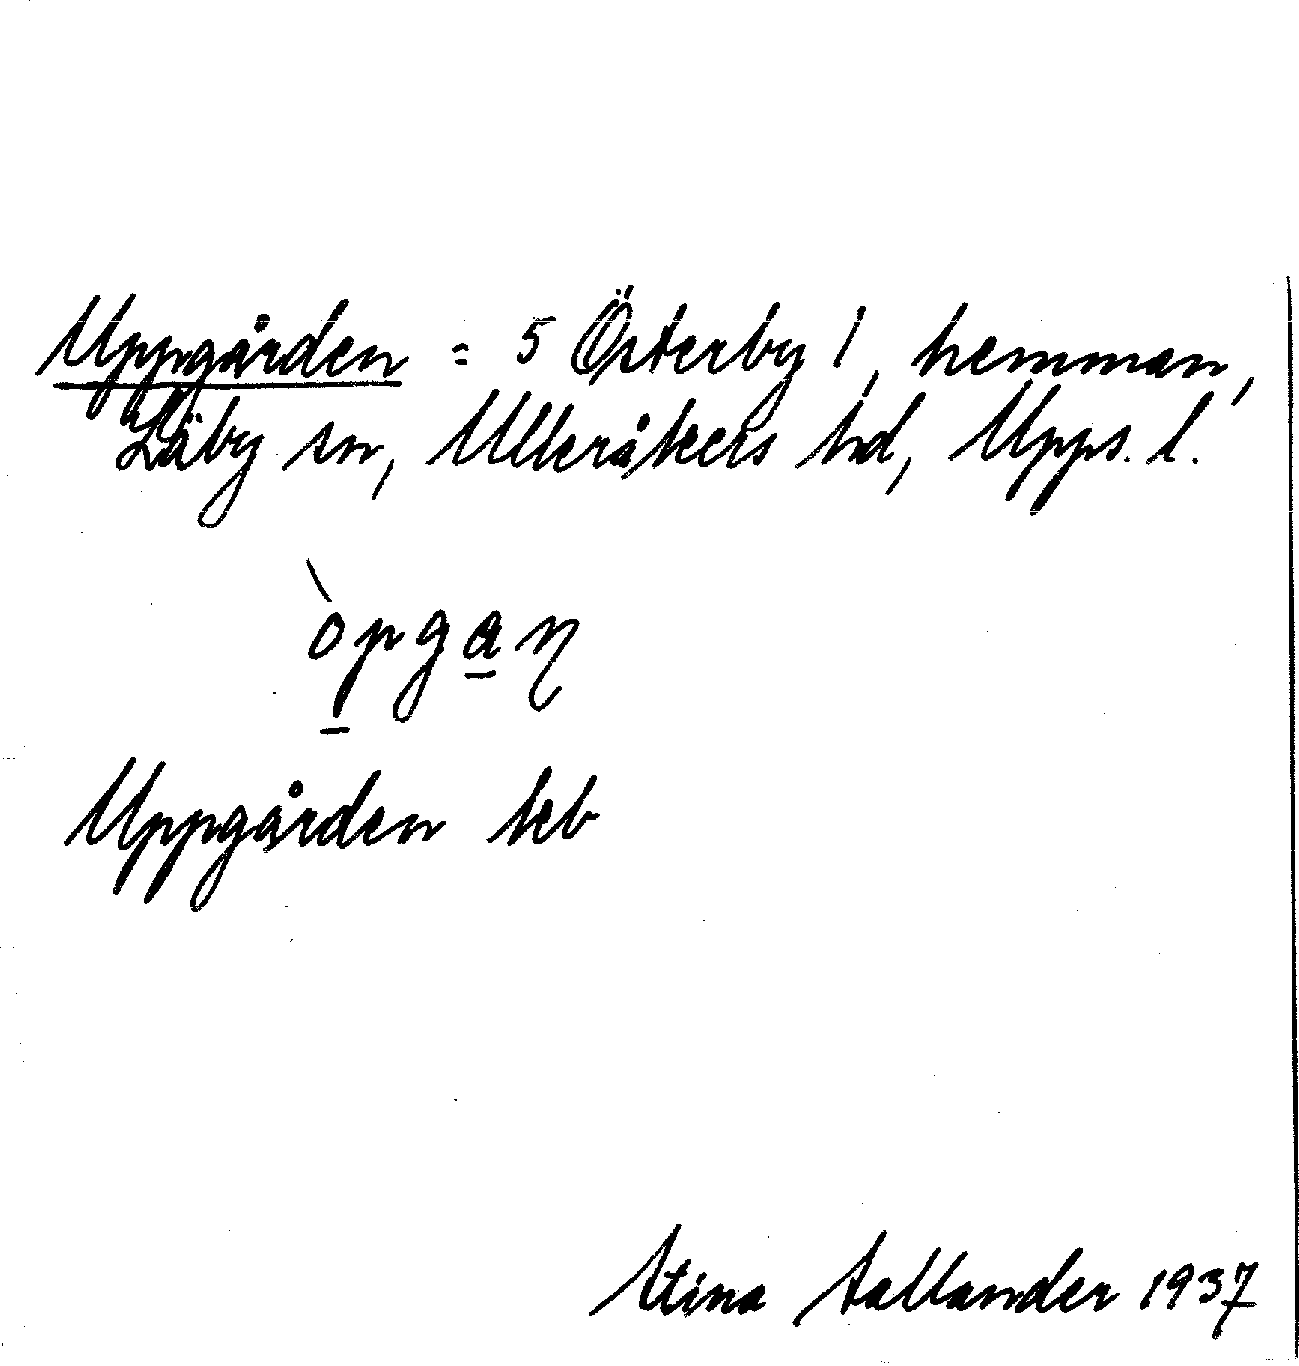 Uppgården = 5 Österby 1, hemman,
Läby sn, Ulleråkers hd, Upps. l.
òpgaɳ
Uppgården keb
Stina
1937